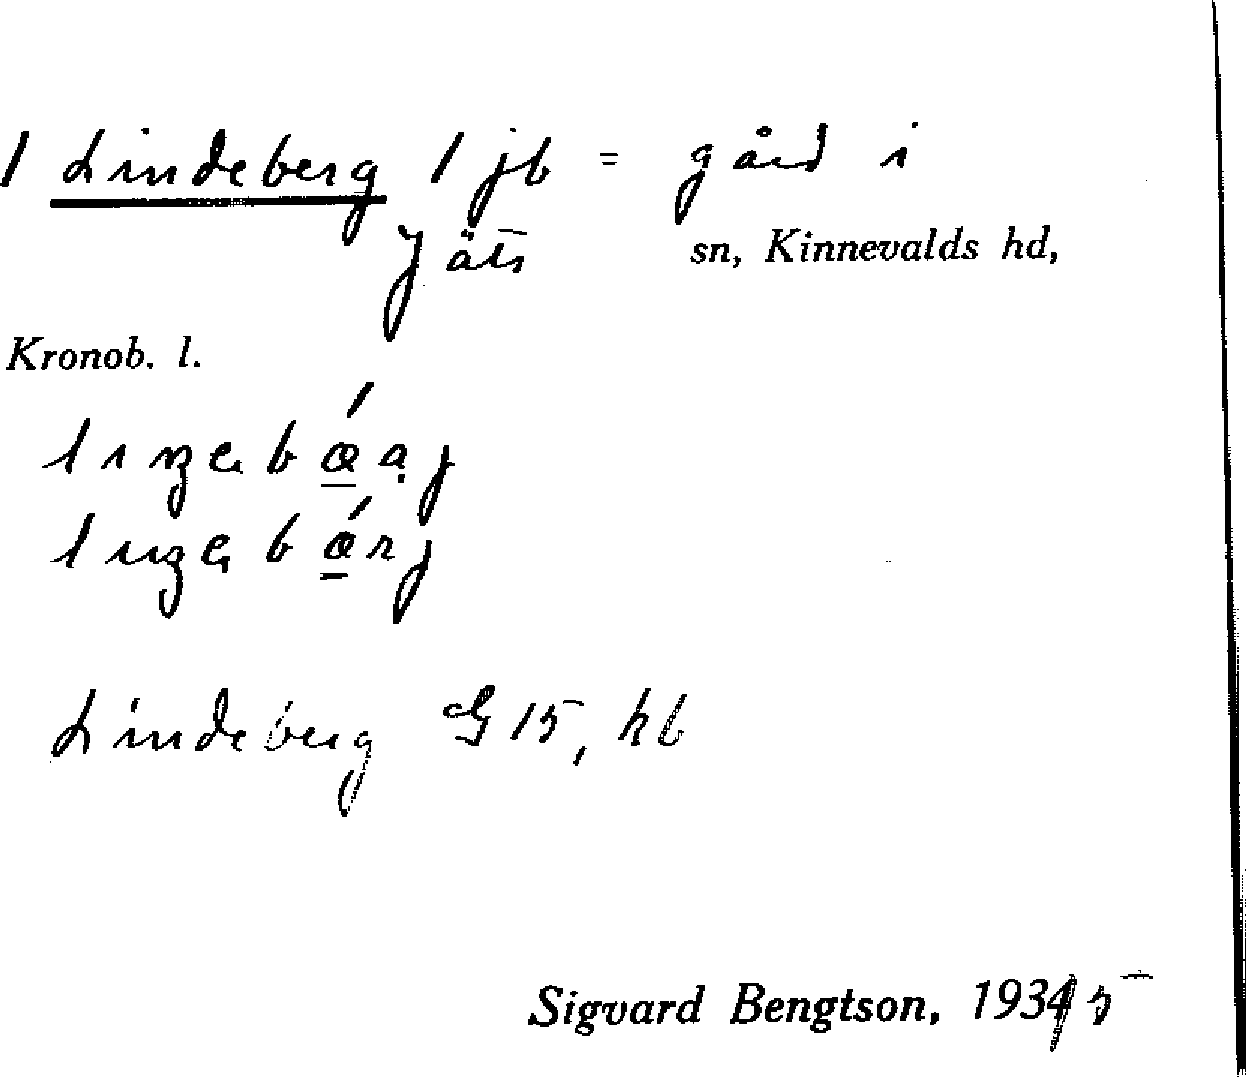 1 Lindeberg 1 jb = gård i
Jäts sn, Kinnevalds hd,
Kronob. l.
Lindeberg G 15, hb
Sigvard Bengtson, 1935